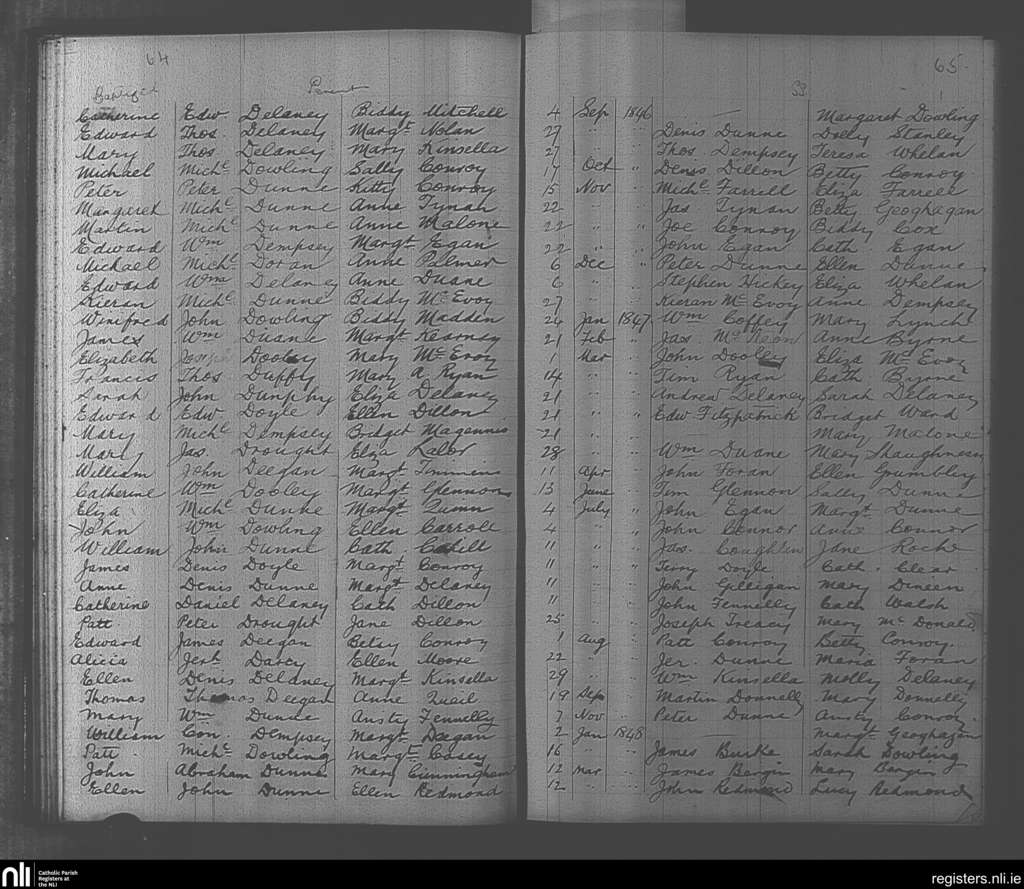 64
65
Baptized Parent SS
Catherine Edw. Delaney Biddy Mitchell 4 Sep 1846 — Margaret Dowling
Edward Thos. Delaney Margt Nolan 27 " " Denis Dunne Dolly Stanley
Mary Thos. Delaney Mary Kinsella 27 " " Thos Dempsey Teresa Whelan
Michael Michl Dowling Sally Conroy 17 Oct " Denis Dillon Betty Conroy
Peter Peter Dunne Kitty Conroy 15 Nov " Michl Farrell Eliza Farrell
Margaret Michl Dunne Anne Tynan 22 " " Jas Tynan Betty Geoghagan
Martin Michl Dunne Anne Malone 22 " " Joe Conroy Biddy Cox
Edward Wm Dempsey Margt Egan 22 " " John Egan Cath Egan
Michael Michl Doran Anne Palmer 6 Dec " Peter Dunne Ellen Dunne
Edward Wm Delaney Anne Duane 6 " " Stephen Hickey Eliza Whelan
Kieran Michl Dunne Biddy McEvoy 27 " " Kieran McEvoy Anne Dempsey
Winifred John Dowling Biddy Madden 24 Jan 1847 Wm Coffey Mary Lynch
James Wm Duane Margt Kearney 21 Feb " Jas. Anne Byrne
Elizabeth Joseph Dooley Mary McEvoy 1 Mar " John Dooley Eliza McEvoy
Francis Thos Duffy Mary A Ryan 14 " " Tim Ryan Cath Byrne
Sarah John Dunphy Eliza Delaney 21 " " Andrew Delaney Sarah Delaney
Edward Edw Doyle Ellen Dillon 21 " " Edw Fitzpatrick Bridget Ward
Mary Michl Dempsey Bridget Magennis 21 " " Mary Malone
Mary Jas. Drought Eliza Lalor 28 " " Wm Duane Mary Shaughness
William John Deegan Margt Timmins 11 Apr " John Foran Ellen Grumbley
Catherine Wm Dooley Margt Glennon 13 June " Tim Glennon Sally Dunne
Eliza Michl Dunne Margt Quinn 4 July " John Egan Margt Dunne
John Wm Dowling Ellen Carroll 4 " " John Connor Anne Connor
William John Dunne Cath Cahill 11 " " Jas. Coughlin Jane Roche
James Denis Doyle Margt Conroy 11 " " Terry Doyle Cath. Clear
Anne Denis Dunne Margt Delaney 11 " " John Gilligan Mary Duneen
Catherine Daniel Delaney Cath Dillon 11 " " John Fennelly Cath Walsh
Patt Peter Drought Jane Dillon 25 " " Joseph Treacy Mary McDonald
Edward James Deegan Betsy Conroy 1 Aug " Patt Conroy Betty Conroy
Alicia Jerh Darcy Ellen Moore 22 " " Jer. Dunne Maria Foran
Ellen Denis Delaney Margt Kinsella 29 " " Wm Kinsella Molly Delaney
Thomas Thomas Deegan Anne 19 Sep " Martin Donnelly Mary Donnelly
Mary Wm Dunne Ansty Fennelly 7 Nov " Peter Dunne Ansty Conroy
William Con. Dempsey Margt Deegan 2 Jan 1848 — Margt Geoghagan
Patt Michl Dowling Margt Casey 16 " " James Burke Sarah Dowling
John Abraham Dunne Mary Cunningham 12 Mar " James Bergin Mary Bergin
Ellen John Dunne Ellen Redmond 12 " " John Redmond Lucy Redmond
nli Catholic Parish Registers at the NLI
registers.nli.ie